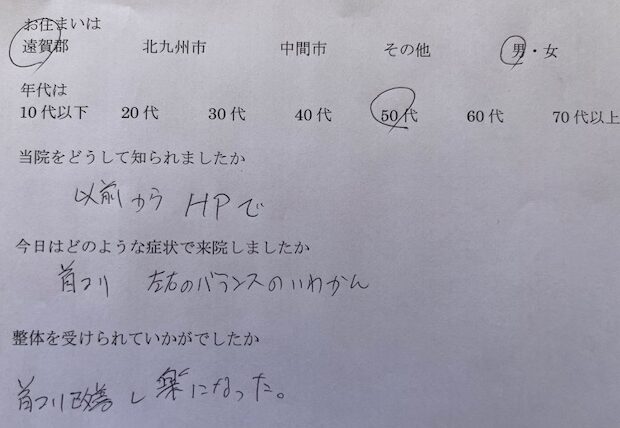 お住まいは
遠賀郡 北九州市 中間市 その他 男・女
年代は
10代以下 20代 30代 40代 50代 60代 70代以上
当院をどうして知られましたか
以前から HPで
今日はどのような症状で来院しましたか
首コリ 左右のバランスのいわかん
整体を受けられていかがでしたか
首コリ改善し楽になった。